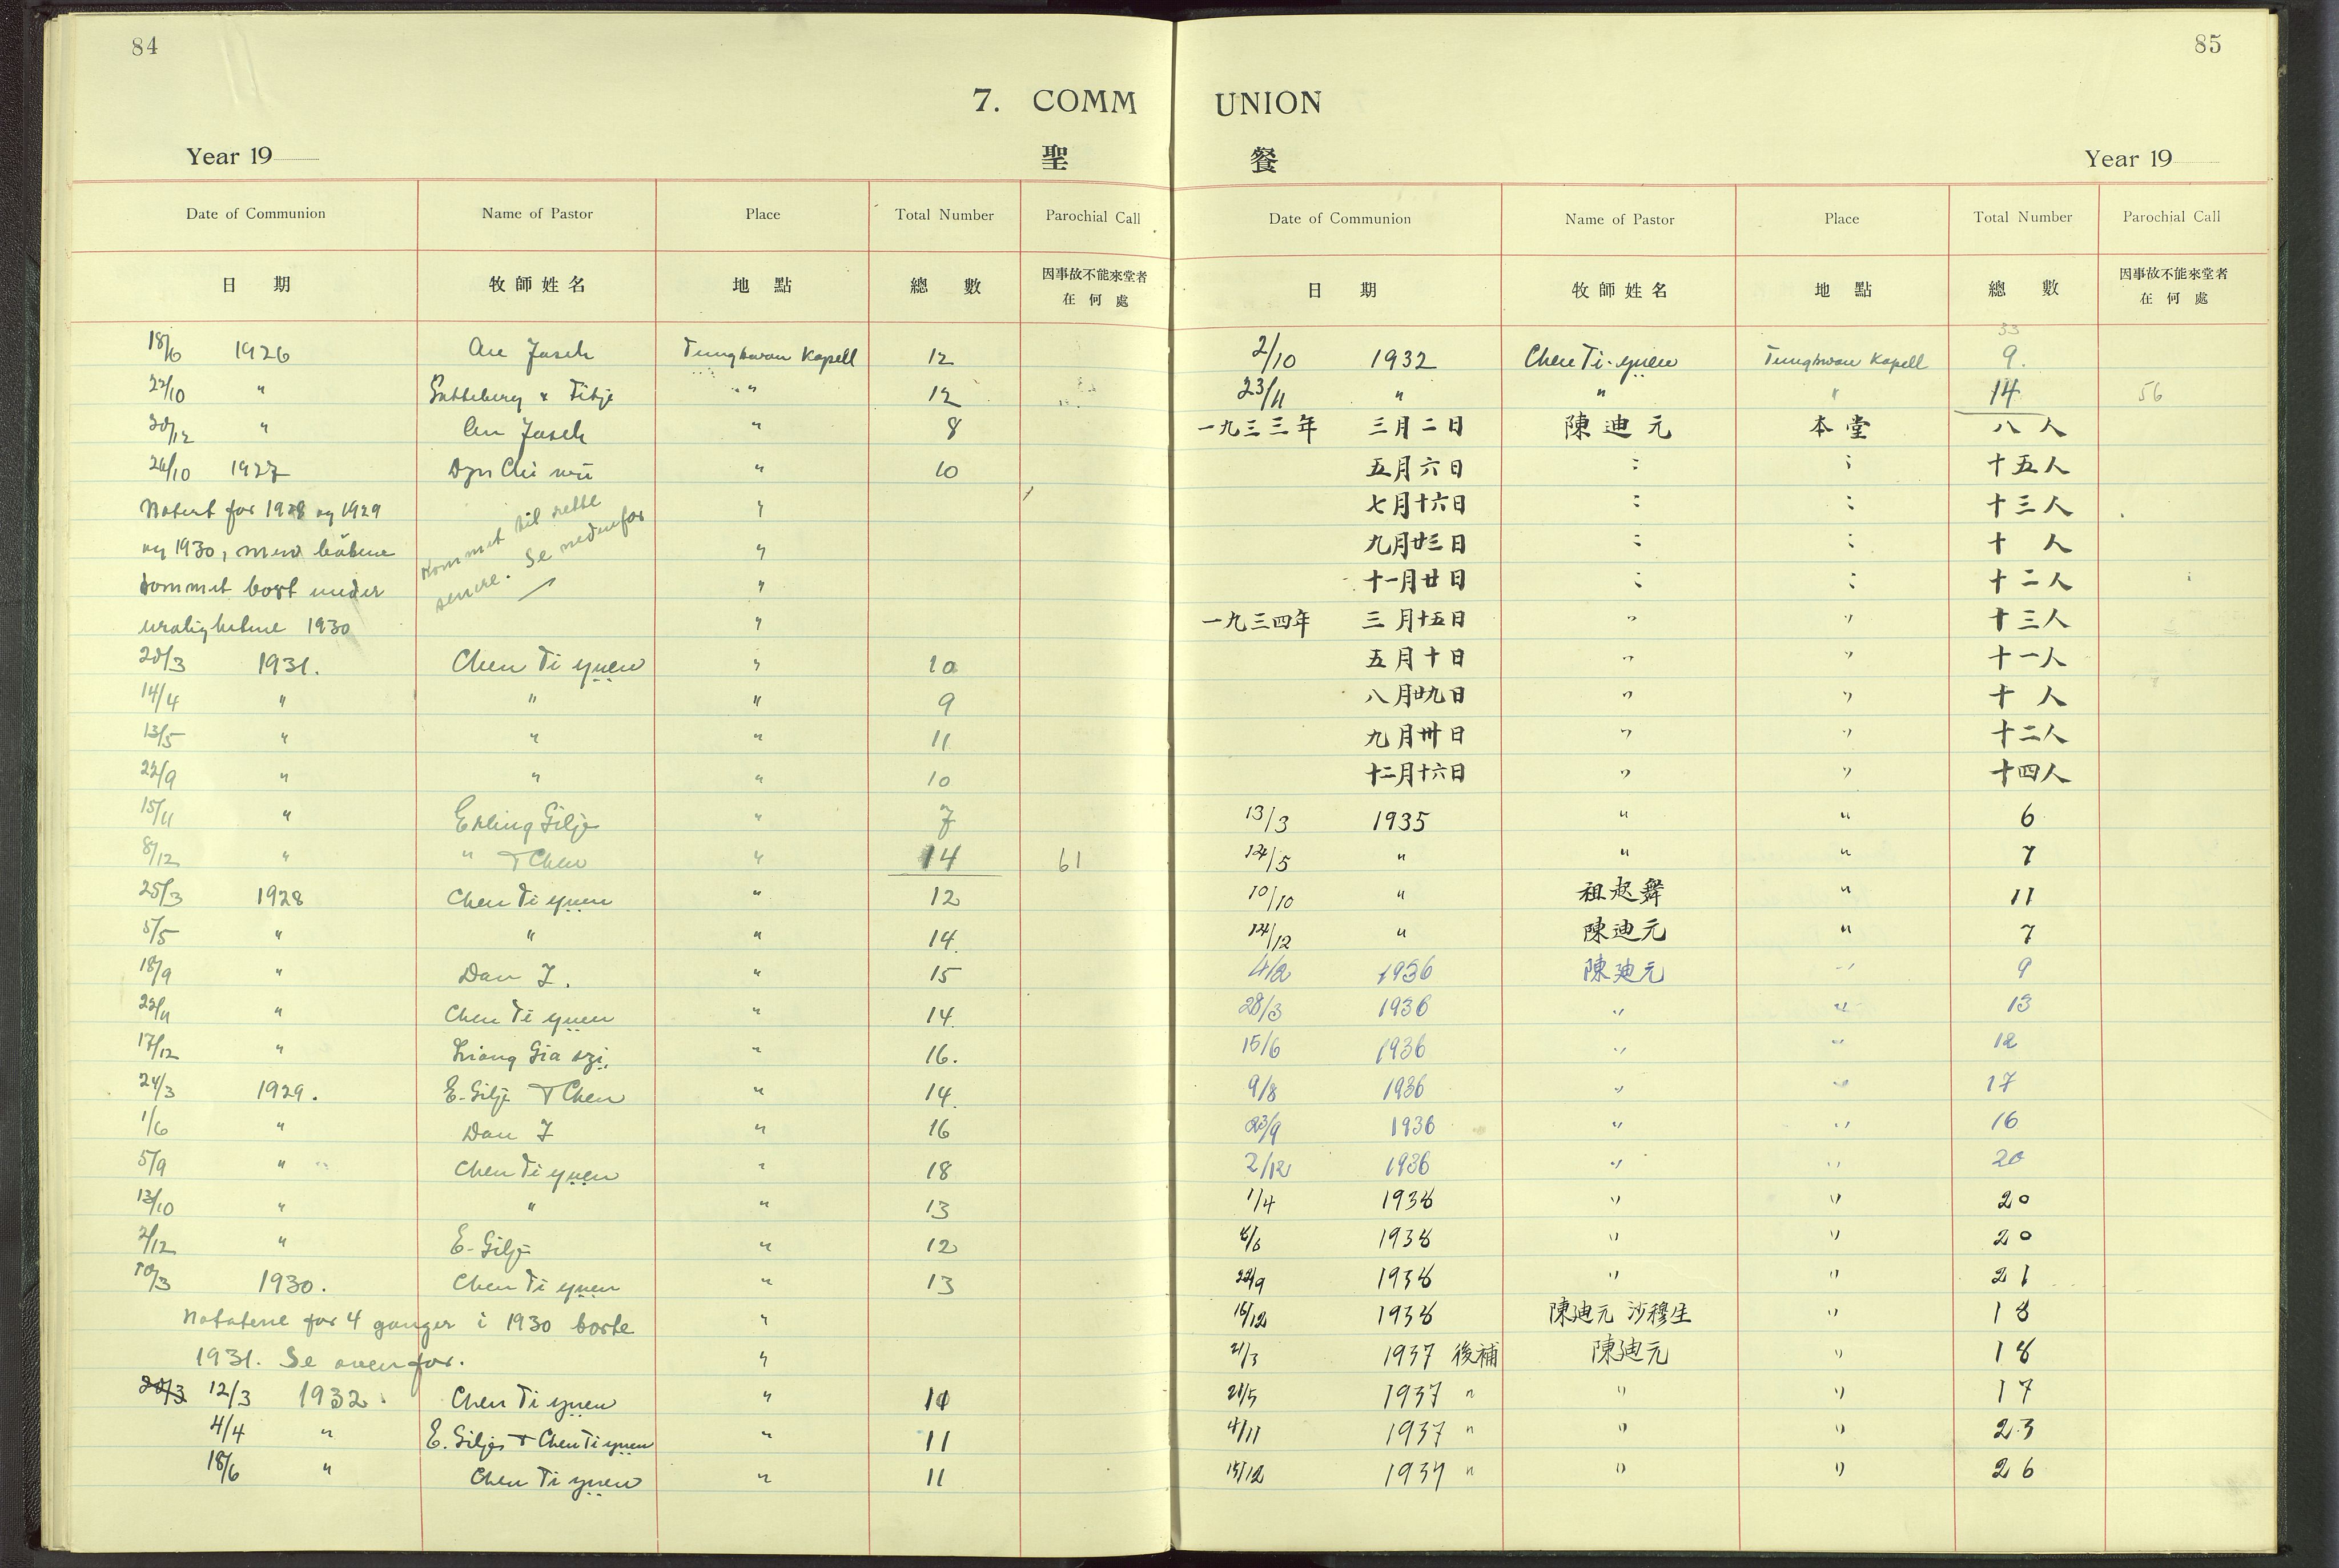 84
7. COMM
Year 19
聖
Date of Communion Name of Pastor Place Total Number Parochial Call
日 期 牧師姓名 地 點 總 數 因事故不能來堂者
在 何 處
18/6 1926 Tunghwan Kapell 12
22/10 " " 12
30/12 " " 8
26/10 1927 " 10
Notert for 1928 og 1929 "
og 1930, men "
kommet bort under "
1930 "
Kommet til rette
senere. Se nedenfor
20/3 1931. Chen Ti yuen " 10
14/4 " " " 9
13/5 " " " 11
22/9 " " " 10
15/11 " Erling Gilje " 7
8/12 " " + Chen " 14 61
25/3 1928 Chen Ti yuen " 12
5/5 " " " 14.
18/9 " Dan J. " 15
22/11 " Chen Ti yuen " 14.
17/12 " " 16.
24/3 1929. E. Gilje + Chen " 14.
1/6 " Dan J " 16
5/9 " Chen Ti yuen " 18
13/10 " " " 13
2/12 " E. Gilje " 12
10/3 1930. Chen Ti yuen " 13
Notatene for 4 ganger i 1930 borte "
1931. Se ovenfor. "
20/3 12/3 1932. Chen Ti yuen " 10
4/4 " E. Gilje + Chen Ti yuen " 11
18/6 " Chen Ti yuen " 11
85
UNION
餐
Year 19
Date of Communion Name of Pastor Place Total Number Parochial Call
日 期 牧師姓名 地 點 總 數 因事故不能來堂者
在 何 處
33
2/10 1932 Chen Ti-yuen Tunghwan Kapell 9.
23/11 " " " 14 56
一九三三年 三月二日 陳迪元 本堂 八人
五月六日 〃 〃 十五人
七月十六日 〃 〃 十三人
九月廿三日 〃 〃 十人
十一月廿日 〃 〃 十二人
一九三四年 三月十五日 〃 〃 十三人
五月十日 〃 〃 十一人
八月廿九日 〃 〃 十人
九月卅日 〃 〃 十二人
十二月十六日 〃 〃 十四人
13/3 1935 " " 6
" " " 7
10/10 " 祖起舞 " 11
" 陳迪元 " 7
4/2 1936 陳迪元 " 9
28/3 1936 " " 13
15/6 1936 " " 12
9/8 1936 " " 17
23/9 1936 " " 16
2/12 1936 " " 20
1/4 1938 " " 20
1938 " " 20
22/9 1938 " " 21
16/12 1938 陳迪元 沙穆生 " 18
21/3 1937 後補 陳迪元 " 18
21/5 1937 " " " 17
4/11 1937 " " " 23
15/12 1937 " " " 26